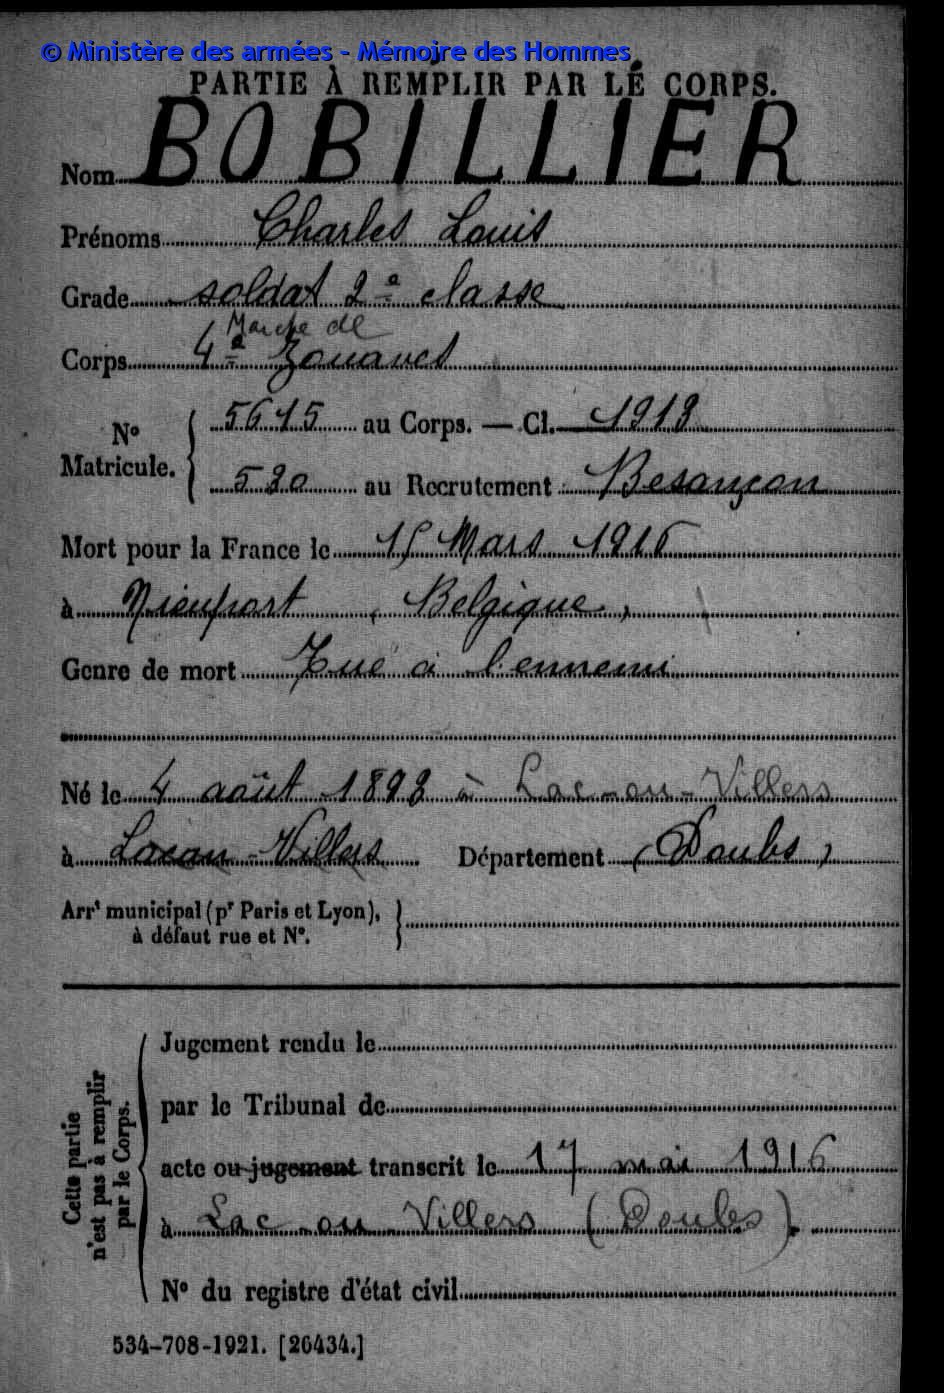 © Ministère des armées - Mémoire des Hommes
PARTIE À REMPLIR PAR LE CORPS.
Nom BOBILLIER
Prénoms Charles Louis
Grade soldat 2e classe
Marche de
Corps 4e Zouaves
No Matricule.
5615 au Corps. — Cl. 1913
530 au Recrutement Besançon
Mort pour la France le 15 Mars 1916
à Nieuport (Belgique)
Genre de mort Tué à l'ennemi
Né le 4 août 1893 à Lac-ou-Villers
à Lacou-Villers Département (Doubs)
Arrt municipal (pr Paris et Lyon),
à défaut rue et No.
Cette partie
n'est pas à remplir
par le Corps.
Jugement rendu le
par le Tribunal de
acte ou jugement transcrit le 17 mai 1916
à Lac-ou-Villers (Doubs).
No du registre d'état civil
534-708-1921. [26434.]